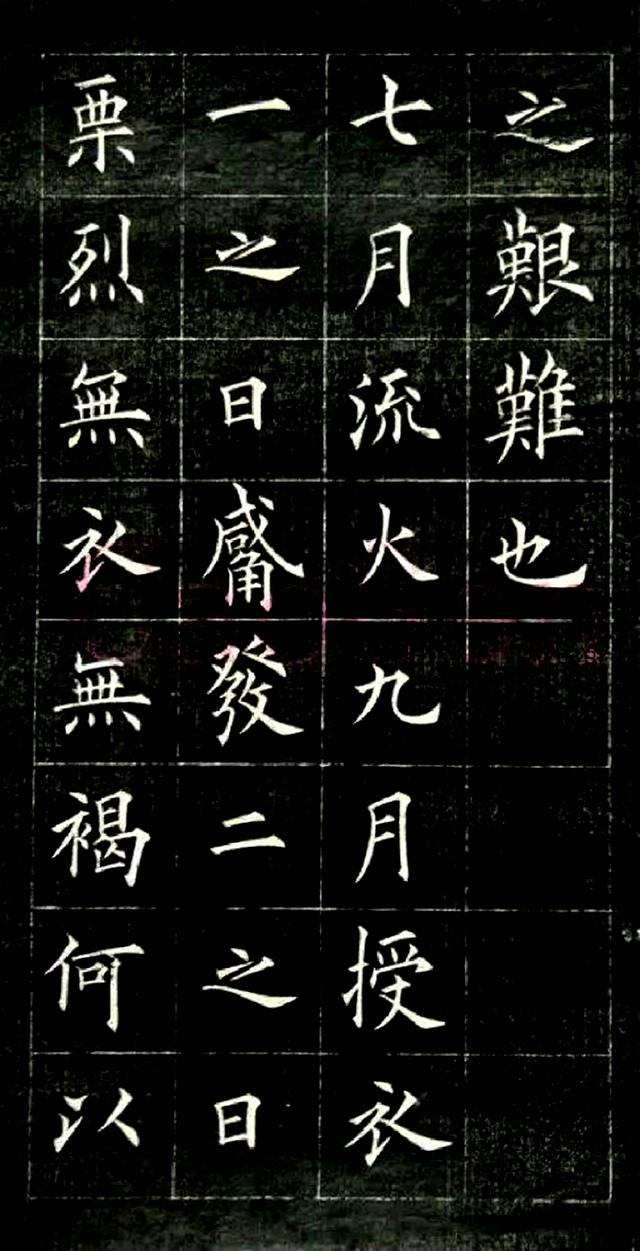 之艱難也
七月流火九月授衣
一之日觱發二之日
栗烈無衣無褐何以